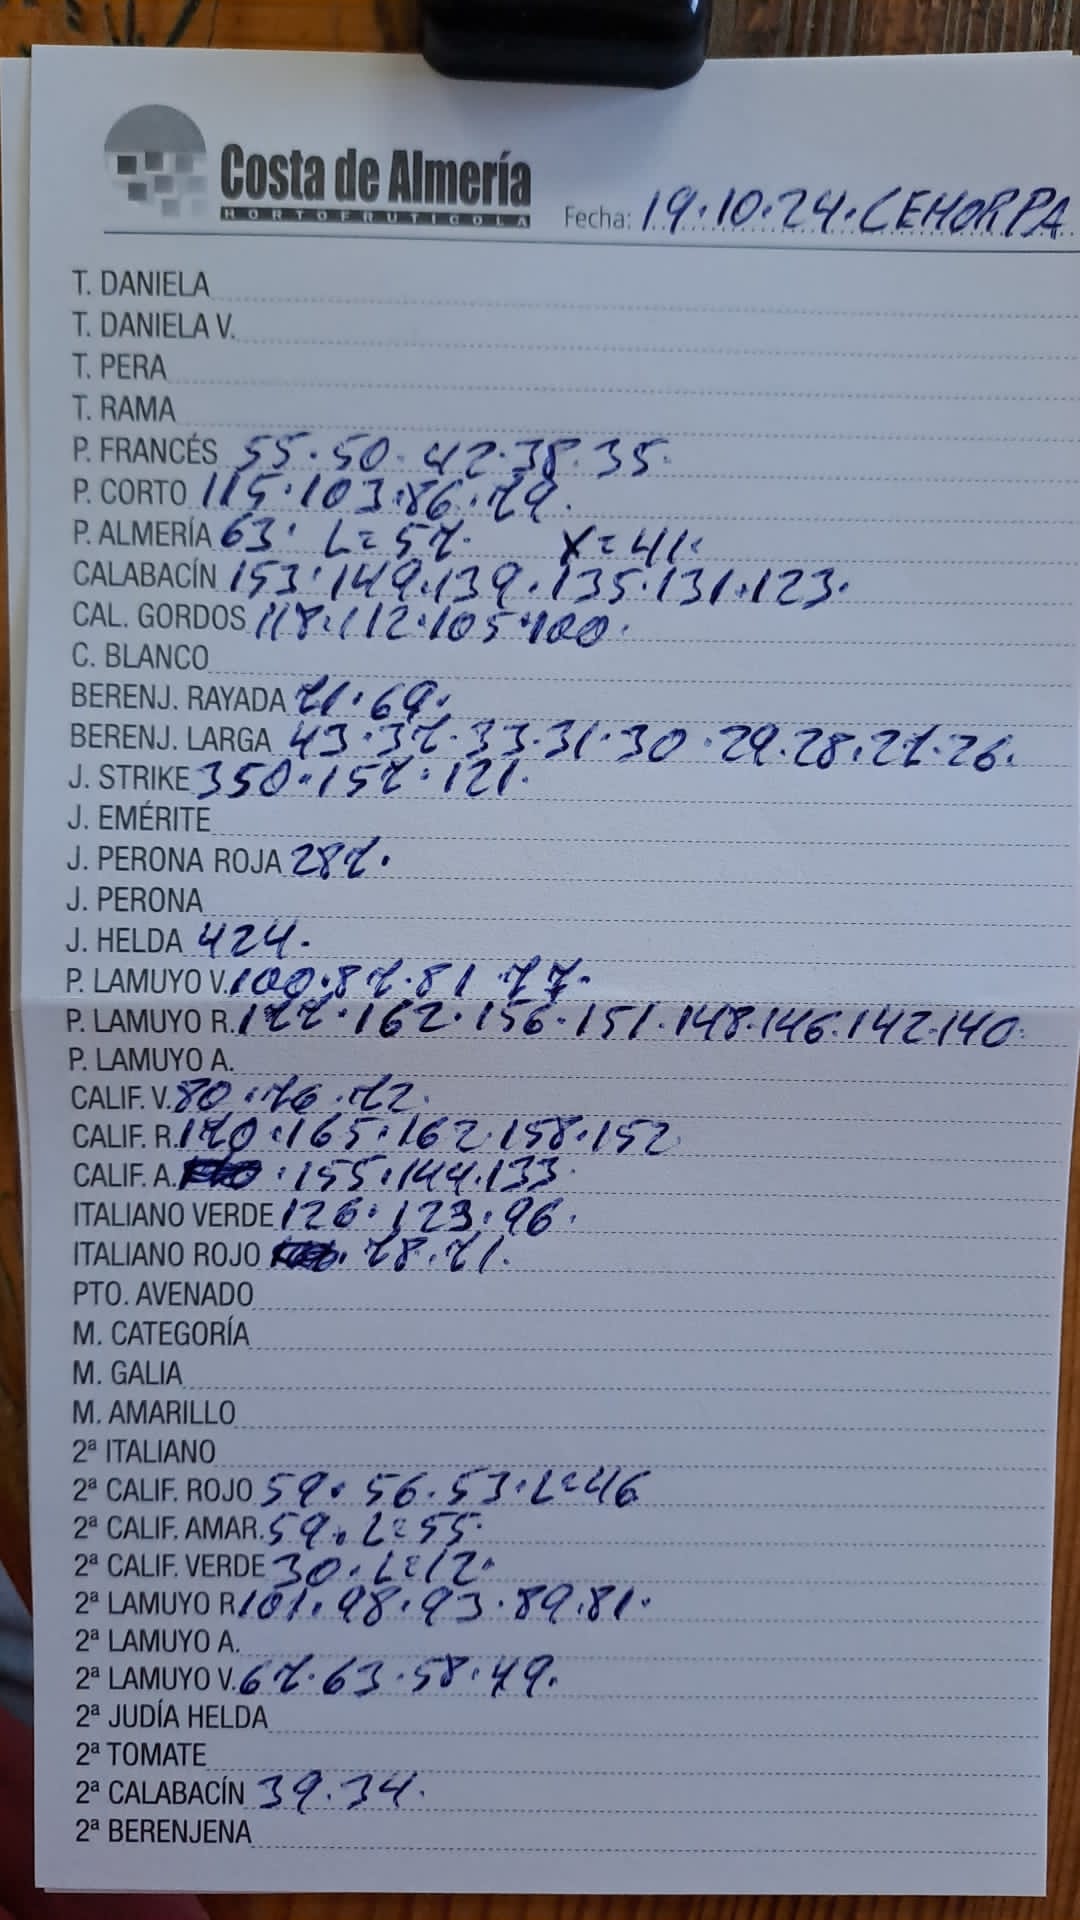 Costa de Almería
HORTOFRUTICOLA
Fecha: 19.10.24. CEHORPA
T. DANIELA
T. DANIELA V.
T. PERA
T. RAMA
P. FRANCÉS 55.50.42.38.35.
P. CORTO 115.103.86.79.
P. ALMERÍA 63. L=57. X=41.
CALABACÍN 153.149.139.135.131.123.
CAL. GORDOS 118.112.105.100.
C. BLANCO
BERENJ. RAYADA 71.69.
BERENJ. LARGA 43.37.33.31.30.29.28.27.26.
J. STRIKE 350.157.121.
J. EMÉRITE
J. PERONA ROJA 287.
J. PERONA
J. HELDA 424.
P. LAMUYO V. 100.87.81 77.
P. LAMUYO R. 177.162.156.151.148.146.142.140.
P. LAMUYO A.
CALIF. V. 80.76.72.
CALIF. R. 170.165.162.158.152
CALIF. A. .155.144.133.
ITALIANO VERDE 126.123.96.
ITALIANO ROJO . 78.71.
PTO. AVENADO
M. CATEGORÍA
M. GALIA
M. AMARILLO
2ª ITALIANO
2ª CALIF. ROJO 59.56.53.L=46
2ª CALIF. AMAR. 59.L=55.
2ª CALIF. VERDE 30.L=12.
2ª LAMUYO R 101.98.93.89.81.
2ª LAMUYO A.
2ª LAMUYO V. 67.63.58.49.
2ª JUDÍA HELDA
2ª TOMATE
2ª CALABACÍN 39.34.
2ª BERENJENA